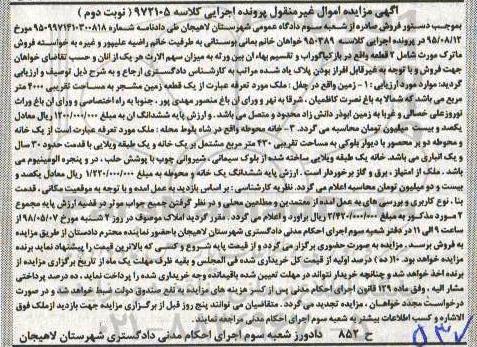 آگهی مزایده اموال غیرمنقول پرونده اجرایی کلاسه ۹۷۲۱۰۵ ( نوبت دوم )
بموجب دستور فروش صادره از شعبه سوم دادگاه عمومی شهرستان لاهیجان طی دادنامه شماره ۹۵۰۹۹۷۱۴۱۰۳۰۰۸۱۸ مورخ
۹۵/۰۸/۱۲ در پرونده اجرایی کلاسه ۹۵۰۳۸۹ خواهان خانم بمانی بوستانی به طرفیت خانم راضیه علیپور و غیره به خواسته فروش
ماترک مورث شامل ۲ قطعه واقع در بازکیاگوراب و تقسیم بهاء ان بین ورثه به میزان سهم الارث هر یک از انان و حسب تقاضای خواهان
جهت فروش و با توجه به غیرقابل افراز بودن پلاک یاد شده مراتب به کارشناس دادگستری ارجاع و به شرح ذیل توصیف و ارزیابی
گردید: موارد ارزیابی : ۱- زمین واقع در چفل : ملک مورد تعرفه عبارت از یک قطعه زمین مشجر به مساحت تقریبی ۴۰۰۰ متر
مربع می باشد که شمالا به باغ نصرت کاظمیان ، شرقا به نهر و ورای ان باغ منصور مهدی پور ، جنوبا به راه اختصاصی و ورای ان باغ وراث
نوروزعلی خصالی و غربا به زمین ابوذر دانش زاد محدود و متصل می باشد . و ارزش پایه ششدانگ ان به مبلغ ۱/۲۰۰/۰۰۰/۰۰۰ ریال معادل
یکصد و بیست میلیون تومان محاسبه می گردد. ۲- خانه محوطه واقع در شاه بلوط محله : ملک مورد تعرفه عبارت است از یک خانه
و محوطه دو بر محصور با دیوار بلوکی به مساحت تقریبی ۴۳۰ متر مربع مشتمل بر یک خانه و یک طبقه ویلایی با قدمت حدود ۳۰ سال
و یک انباری می باشد. خانه یک طبقه ویلایی ساخته شده از بلوک سیمانی ، شیروانی چوب با پوشش حلب ، در و پنجره الومینیوم می
باشد. ملک از امتیاز ، برق و گاز برخوردار است . ارزش پایه ششدانگ یک خانه و محوطه به مبلغ ۱/۲۲۰/۰۰۰/۰۰۰ ریال معادل یکصد و
بیست و دو میلیون تومان محاسبه اعلام می گردد. نظریه کارشناسی : بر اساس بازدید به عمل امده و با توجه به موقعیت مکانی ، قدمت
بنا ، نوع کاربری و بررسی های به عمل امده از معتمدین و مطلعین محلی و در نظر گرفتن جمیع جوانب موثر در قضیه ارزش پایه مجموع
۲ مورد مذکور به مبلغ ۲/۴۲۰/۰۰۰/۰۰۰ ریال براورد و اعلام می گردد. مقرر گردید املاک موصوف در روز ۲ شنبه مورخ ۹۸/۰۵/۰۷ از
ساعت ۹ الی ۱۱ در دفتر شعبه سوم اجرای احکام مدنی دادگستری شهرستان لاهیجان باحضور نماینده محترم دادستان از طریق مزایده
به فروش برسد . مزایده به صورت حضوری برگزار می گردد و از قیمت پایه شروع و کسی که بالاترین قیمت را پیشنهاد نماید برنده
مزایده خواهد بود. ۱۰ ده درصد اولیه از قیمت کل خریداری شده فی المجلس و بقیه ظرف مهلت یک ماه از تاریخ برگزاری مزایده از
برنده اخذ خواهد شد و چنانچه خریدار نتواند در مهلت تعیین شده باقیمانده وجه خریداری شده را پرداخت نماید ، ده درصد پرداختی
مشار الیه ، وفق ماده ۱۲۹ قانون اجرای احکام مدنی پس از کسر هزینه های مزایده به نفع صندوق دولت ضبط خواهد شد و در صورت
درخواست مجدد خواهان ، مزایده تجدید می گردد. متقاضیان می توانند پنج روز قبل از برگزاری مزایده جهت بازدید ازملک فوق
الاشاره و کسب اطلاعات بیشتر به شعبه سوم اجرای احکام مدنی مراجعه نمایند.
ح ۸۵۲ دادورز شعبه سوم اجرای احکام مدنی دادگستری شهرستان لاهیجان